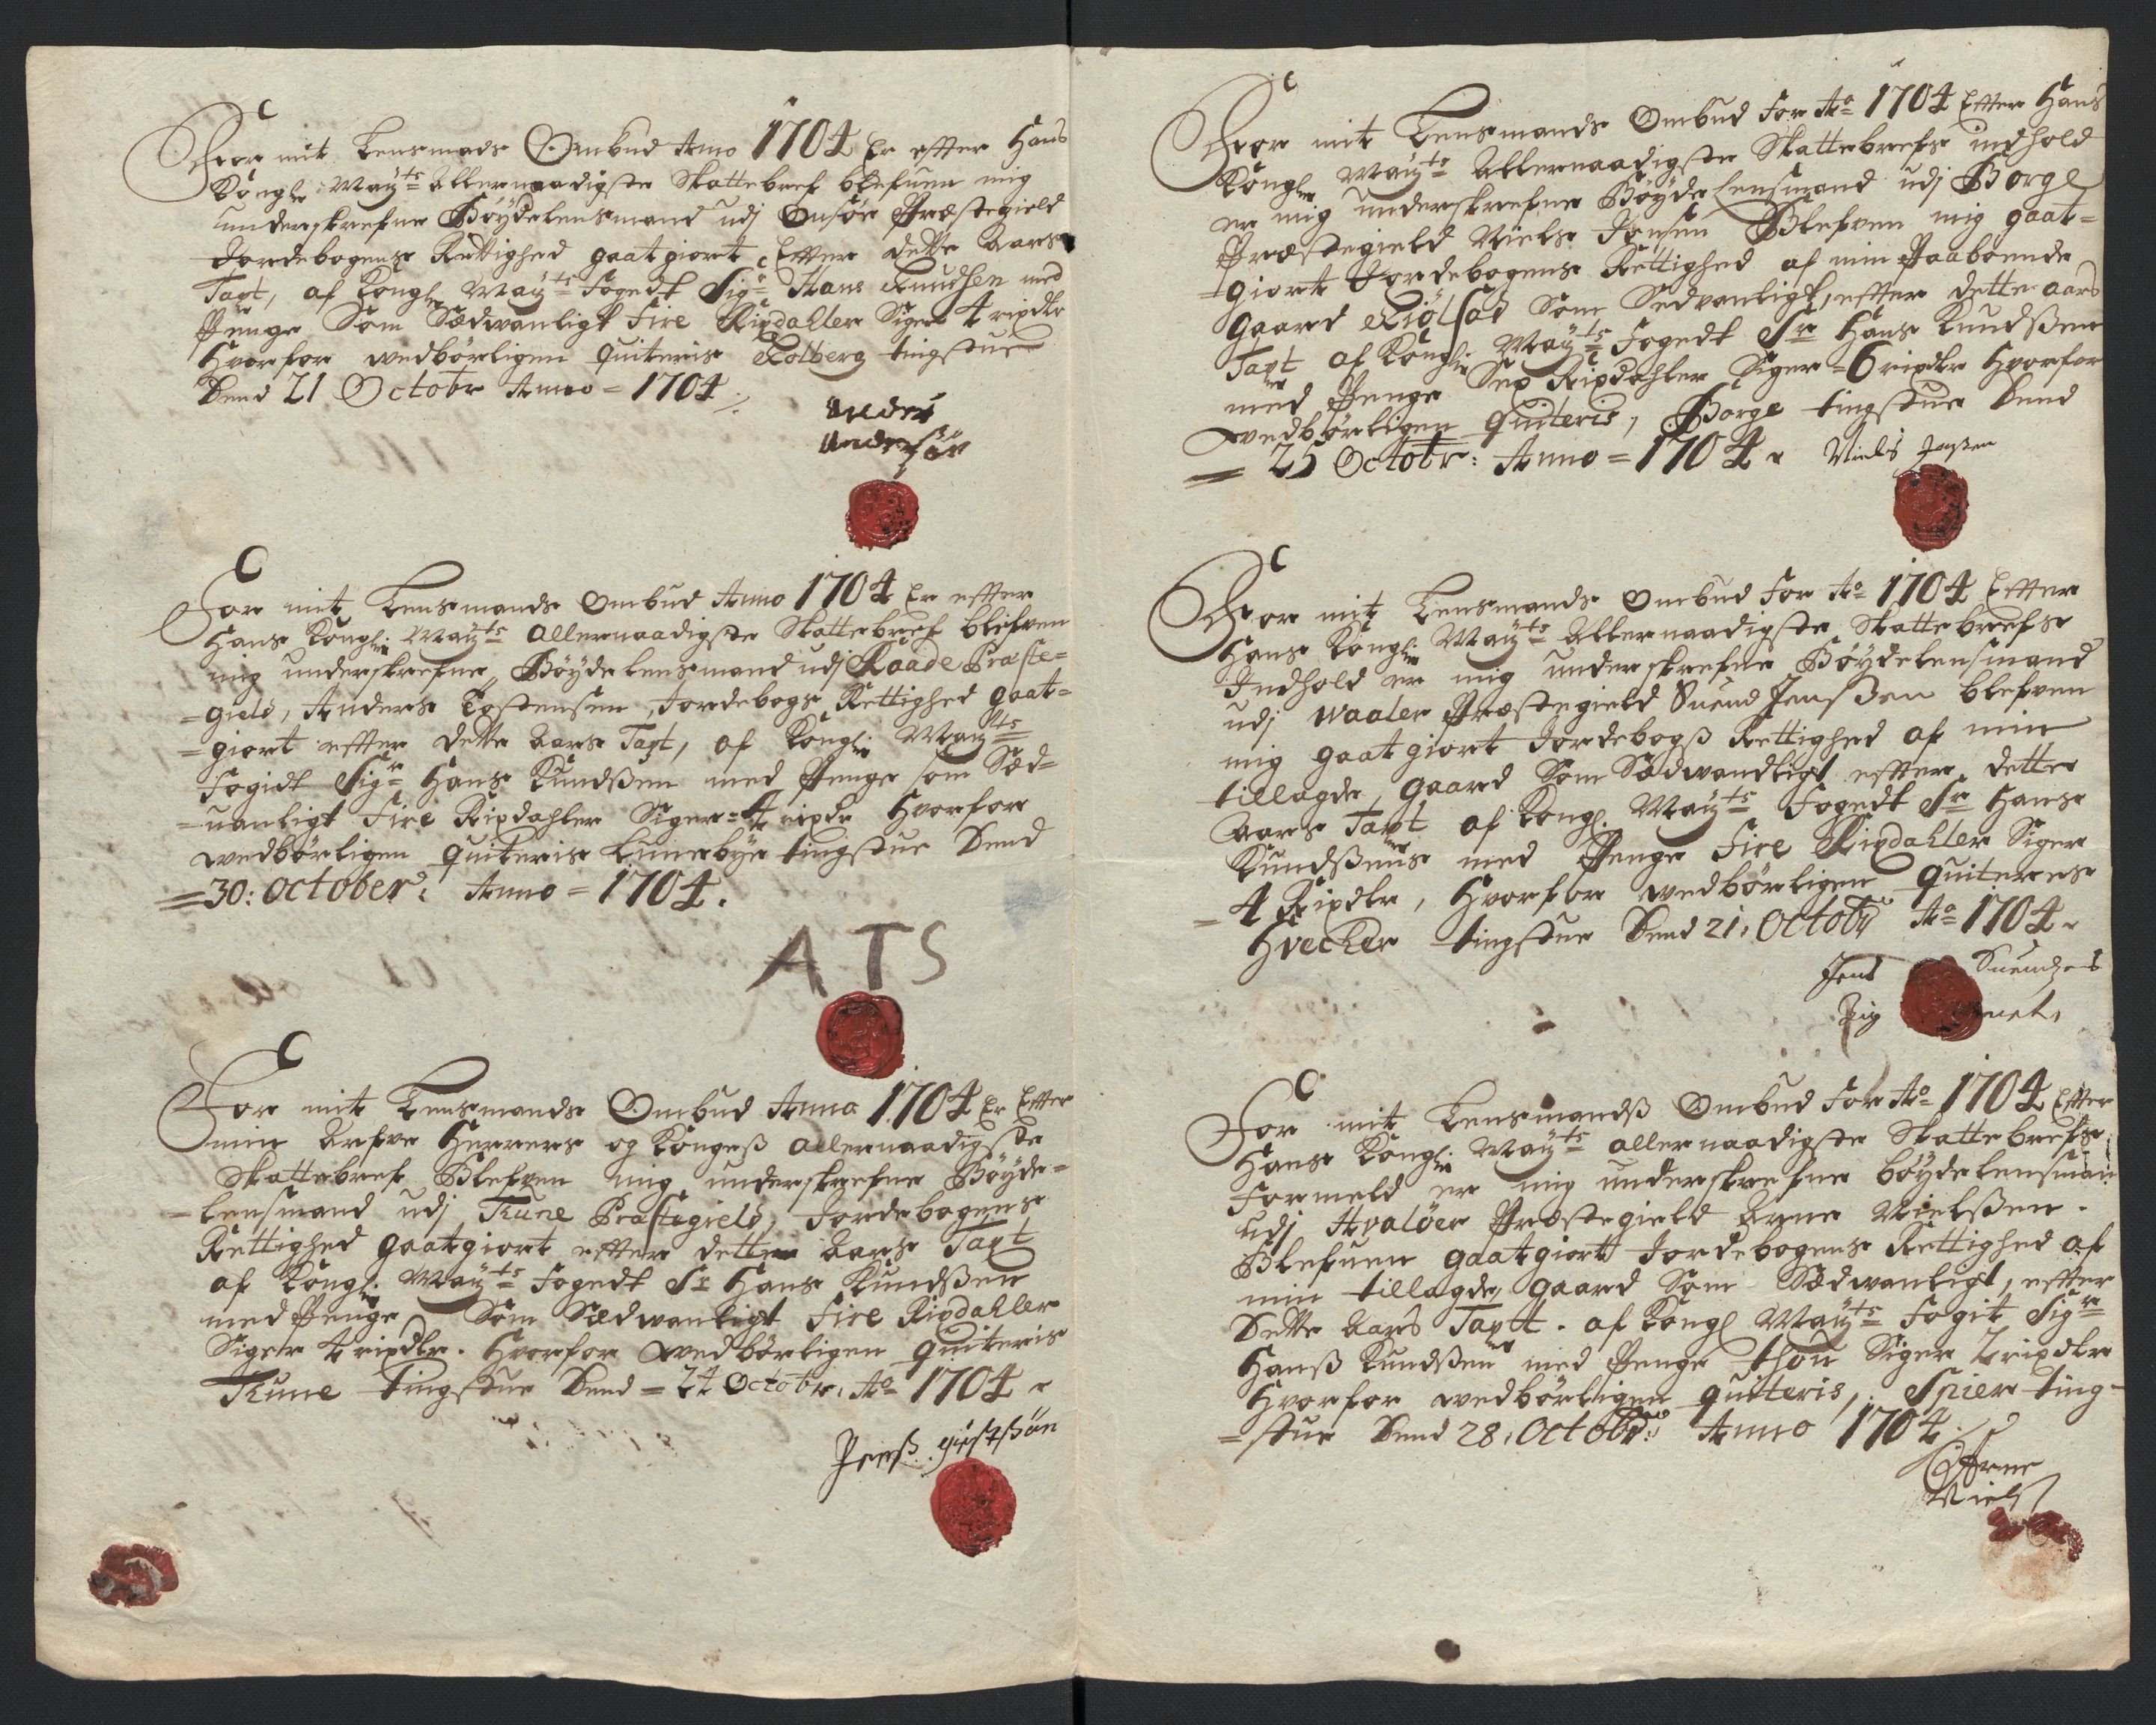 For mit Lensmads Ombud Anno 1704 Er efter Hans
Kongle Mayts Allernaadigste Skattebref blefuen mig
underskrefne Böydelensmand udj Onsöe Præstegield
Jordebogens Rettighed gaatgiort, Efter dette Aars
Taxt, af Kongle Mayts Fogedt Sigr Hans Knudsen med
Penge Som Sædwanligt Fire Rixdahler Siger 4 rixdlr
Hvorfor wedbörligen quiteris Kolberg tingstue
Dend 21 Octobr Anno = 1704
Anders
Andersön
For mit Lensmands Ombud Anno 1704 Er efter
Hans Kongle Mayts Allernaadigste Skattebref blefven
mig underskrefne Böydelensmand udj Raade Præste=
=gield, Anders Tostensen, Jordebogs Rettighed gaat=
=giort efter dette Aars Taxt, af Kongle Mayts
Fogidt Sigr Hans Knudßen med Penge som Sæd=
=uanligt Fire Rixdahler Siger = 4 rixdr Hvorfor
wedbörligen quiteris Lunebye tingstue Dend
= 30: October: Anno = 1704.
ATS
For mit Lensmands Ombud Anno 1704 Er Efter
min Arfve Herrers og Kongeß allernaadigste
Skattebref Blefven mig underskrefne Böyde=
=lensmand udj Tune Præstegield, Jordebogens
Rettighed gaatgiort efter dette Aars Taxt
af Kongle Mayts Fogedt Sr Hans Knudßen
med Penge Som Sædwanligt Fire Rixdahler
Siger 4 rixdlr. Hvorfor wedbörligen quiteris
Tune Tingstue Dend = 24 Octobr: Ao 1704
For mit Lensmands Ombud for Ao 1704 Efter Hans
Kongle Mayts Allernaadigste Skattebrefs indhold
er mig underskrefne Böyde lensmand udj Borge
Præstegield Niels Jensen Blefven mig gaat=
=giort Jordebogens Rettighed af min Paaboende
gaard Kiölstad Som Sedvanligt, efter dette aars
Taxt af Kongle Mayts Fogedt Sr Hans Knudßen
med Penge Sex Rixdahler Siger = 6 rixdlr Hvorfor
wedbörligen Quiteris, Borge tingstue Dend
= 25 Octobr: Anno = 1704 Niels Jenßen
For mit Lensmands Ombud for Ao 1704 Efter
Hans Kongle Mayts Allernaadigste Skattebrefs
Indhold er mig underskrefne Böydelensmand
udj Waaler Præstegield Suend Jenßen blefven
mig gaatgiort Jordebogß Rettighed af min
tillagde, gaard Som Sædwandligt efter dette
Aars Taxt af Kongl. Mayts Fogedt Sr Hans
Knudßens med Penge Fire Rixdahler Siger
= 4 Rixdlr, Hvorfor wedbörligen Quiteres
Hvecker tingstue Dend 21. Octobr Ao 1704
For mit Lensmandß Ombud for Ao 1704 Efter
Hans Kongle Mayts allernaadigste Skattebrefs
Formeld er mig underskrefne böydelensman
udj Hvalöer Præstegield Arne Nielßen.
Blefuen gaatgiortt Jordebogens Rettighed af
min tillagde, gaard Som Sædwanligt, efter
Dette Aars Taxtt. af Kongl Mayts Fogit Sigr
Hanß Knudßen med Penge thou Siger 2 rixdlr
Hvorfor wedbörligen quiteris, Spier ting=
=stue Dend 28. Octobr: Anno 1704
Arne
Niels